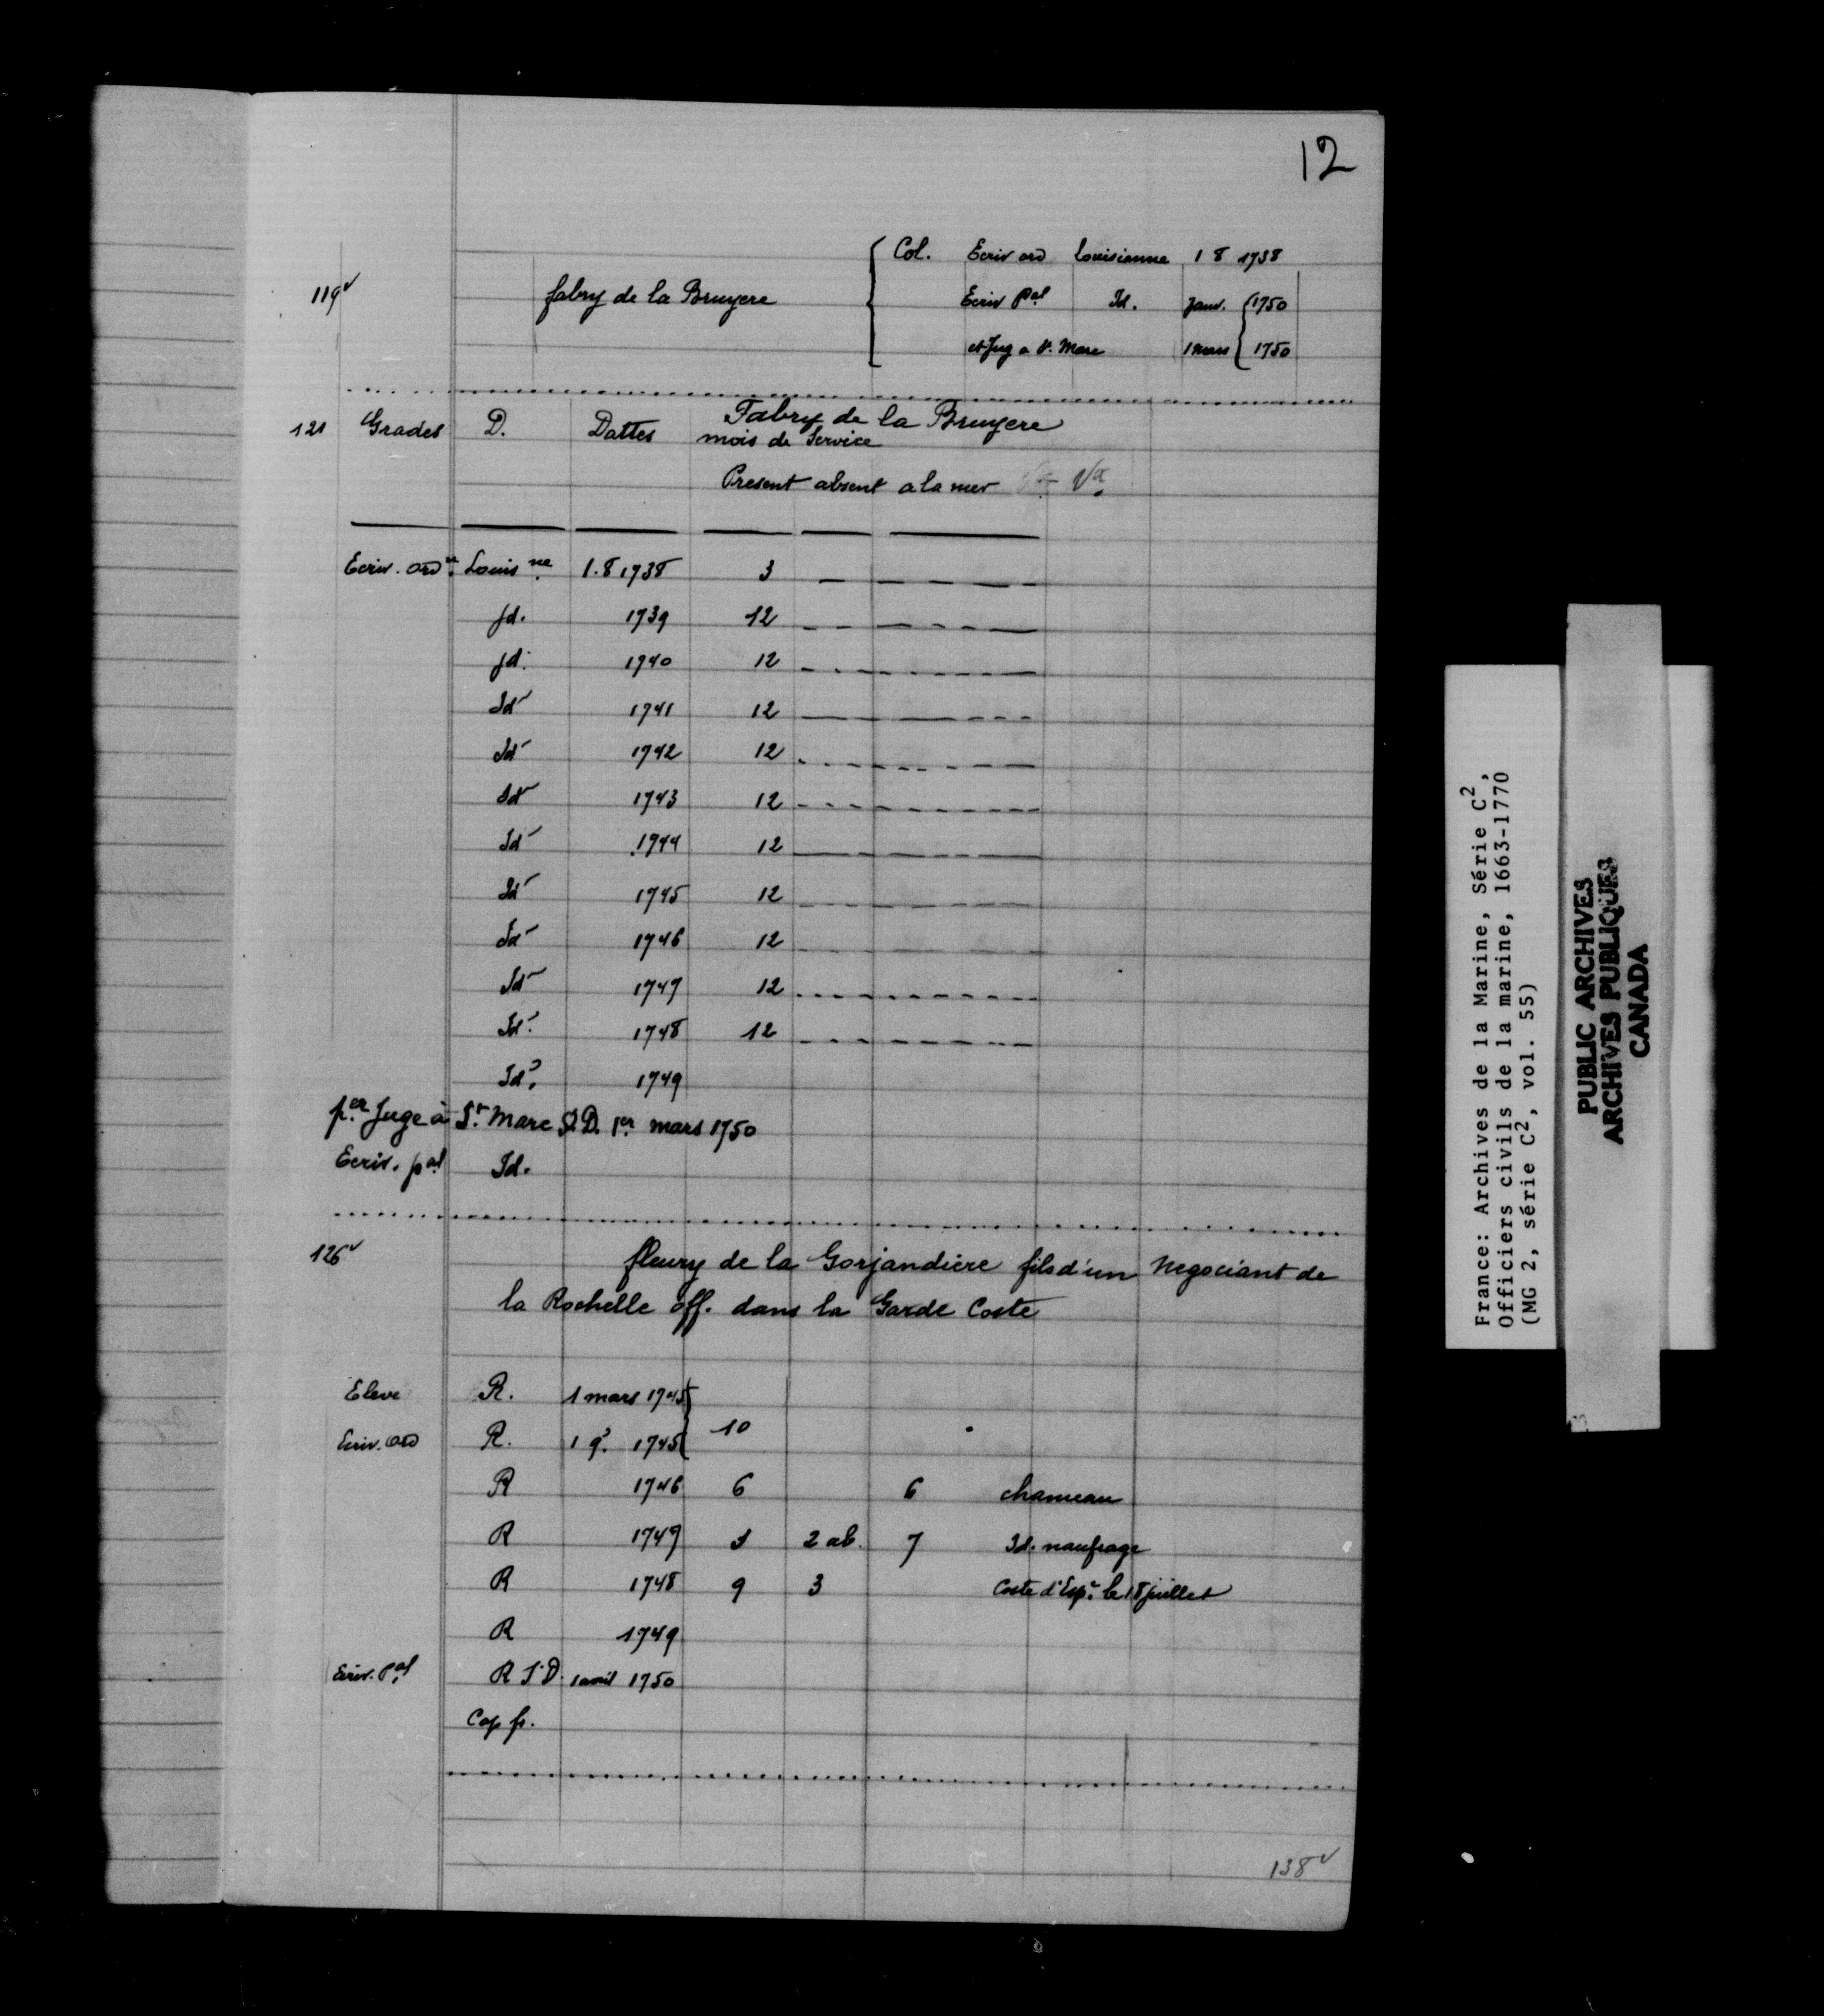 12
Col. Ecriv ord Louisianne 1 8 1738
119v fabry de la Bruyere Ecriv Pal Id. Janv. 1750
et Jug a St. Marc 1 mars 1750
121 Grades D. Dattes Fabry de la Bruyere
mois de Service
Present absent a la mer Vx
Ecriv. ordre Louisne 1.8 1738 3
Jd. 1739 12
Jd. 1740 12
Id 1741 12
Id 1742 12
Id 1743 12
Id 1744 12
Id 1745 12
Id 1746 12
Id 1747 12
Id. 1748 12
Id. 1749
per Juge à St. Marc S.D. 1er mars 1750
Ecriv. pal Id.
126v fleury de la Gorjandiere fils d'un Negociant de
la Rochelle off. dans la Garde Coste
Eleve R. 1 mars 1745
Ecriv. ord R. 1 9. 1745 10
R 1746 6 6 chameau
R 1747 3 2 ab. 7 Id. naufrage
R 1748 9 3 Coste d'Espe. le 18 juillet
R 1749
Ecriv. Pal R S.D. 1 avril 1750
Cap fr.
138v
France: Archives de la Marine, Série C2,
Officiers civils de la marine, 1663-1770
(MG 2, série C2, vol. 55)
PUBLIC ARCHIVES
ARCHIVES PUBLIQUES
CANADA